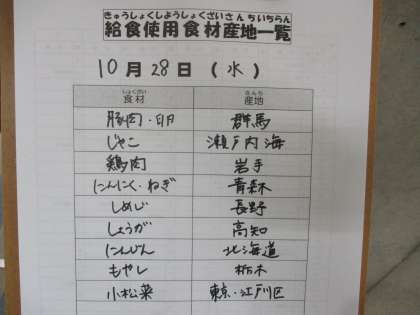 きゅうしょくしようしょくざいさんちいちらん
給食使用食材産地一覧
10月28日(水)
しょくざい さんち
食材 産地
豚肉・卵 群馬
じゃこ 瀬戸内海
鶏肉 岩手
にんにく・ねぎ 青森
しめじ 長野
しょうが 高知
にんじん 北海道
もやし 栃木
小松菜 東京・江戸川区